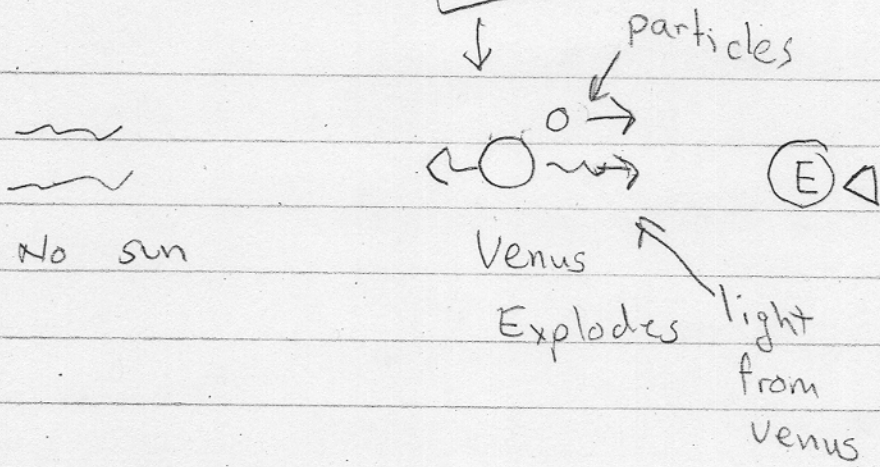 particles
E
No sun
Venus
Explodes
light
from
venus